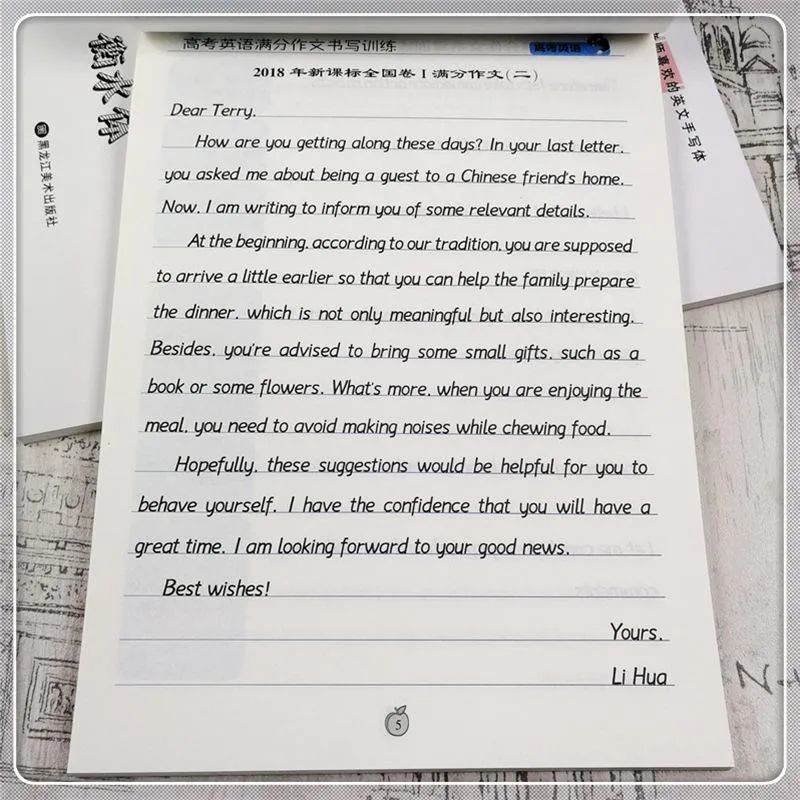 高考英语满分作文书写训练
高考英语
2018 年新课标全国卷 I 满分作文(二)
Dear Terry,
How are you getting along these days? In your last letter,
you asked me about being a guest to a Chinese friend's home.
Now, I am writing to inform you of some relevant details.
At the beginning, according to our tradition, you are supposed
to arrive a little earlier so that you can help the family prepare
the dinner, which is not only meaningful but also interesting.
Besides, you're advised to bring some small gifts, such as a
book or some flowers. What's more, when you are enjoying the
meal, you need to avoid making noises while chewing food.
Hopefully, these suggestions would be helpful for you to
behave yourself. I have the confidence that you will have a
great time. I am looking forward to your good news.
Best wishes!
Yours,
Li Hua
5
衡水
黑龙江美术出版社
喜欢的英文手写体